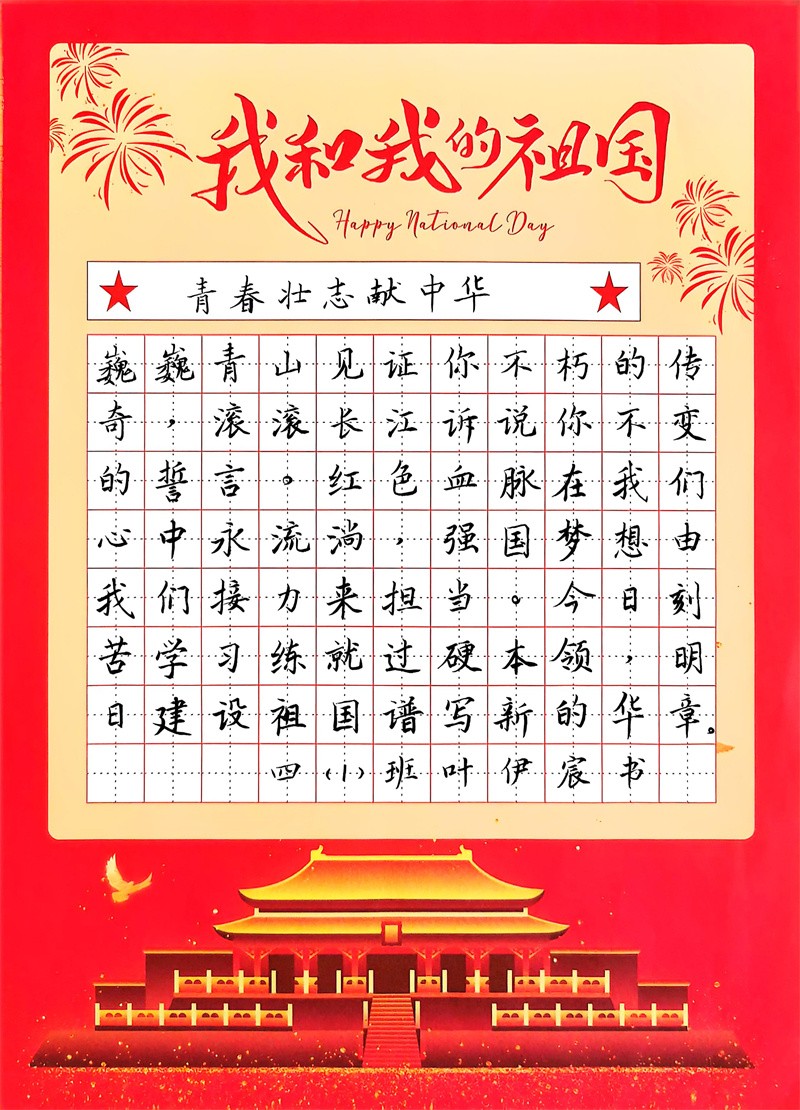 我和我的祖国
Happy National Day
青春壮志献中华
巍巍青山见证你不朽的传
奇，滚滚长江诉说你不变
的誓言。红色血脉在我们
心中永流淌，强国梦想由
我们接力来担当。今日刻
苦学习练就过硬本领，明
日建设祖国谱写新的华章。
四(1)班叶伊宸书